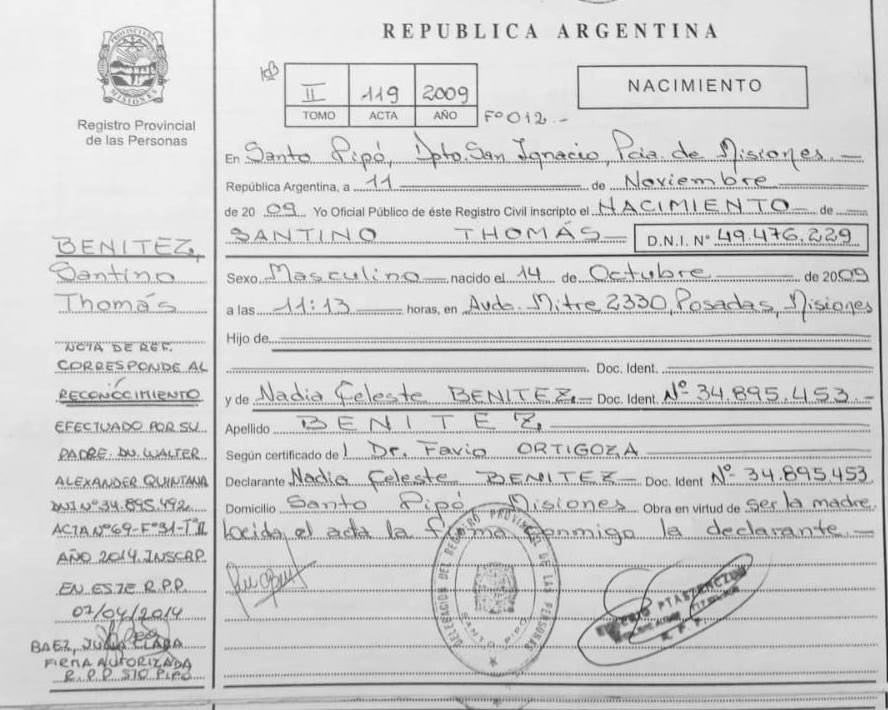 REPUBLICA ARGENTINA
PROVINCIA DE MISIONES
Registro Provincial
de las Personas
II 119 2009
TOMO ACTA AÑO
Fº 012.-
NACIMIENTO
En Santo Pipó, Dpto. San Ignacio, Pcia. de Misiones.—
República Argentina, a 11 de Noviembre
de 2009 Yo Oficial Público de éste Registro Civil inscripto el NACIMIENTO de
SANTINO THOMÁS D.N.I. Nº 49.476.229
Sexo Masculino nacido el 14 de Octubre de 2009
a las 11:13 horas, en Avda. Mitre 2330, Posadas, Misiones
Hijo de
Doc. Ident.
y de Nadia Celeste BENITEZ.— Doc. Ident. Nº 34.895.453.-
Apellido BENITEZ
Según certificado de Dr. Favio ORTIGOZA
Declarante Nadia Celeste BENITEZ Doc. Ident Nº 34.895453
Domicilio Santo Pipó Misiones Obra en virtud de ser la madre
Leida el acta la firma conmigo la declarante.—
BENITEZ,
Santino
Thomás
NOTA DE REF.
CORRESPONDE AL
RECONOCIMIENTO
EFECTUADO POR SU
PADRE. DN. WALTER
ALEXANDER QUINTANA
DNI Nº 34.895.492
ACTA Nº 69-Fº 31-Tº II
AÑO 2014. INSCRP.
EN ESTE R.P.P.
07/04/2014
BAEZ, JULIA CLARA
FIRMA AUTORIZADA
R.P.P STO PIPÓ
DELEGACION DEL REGISTRO PROVINCIAL DE LAS PERSONAS
SANTO PIPO
R.P.P.